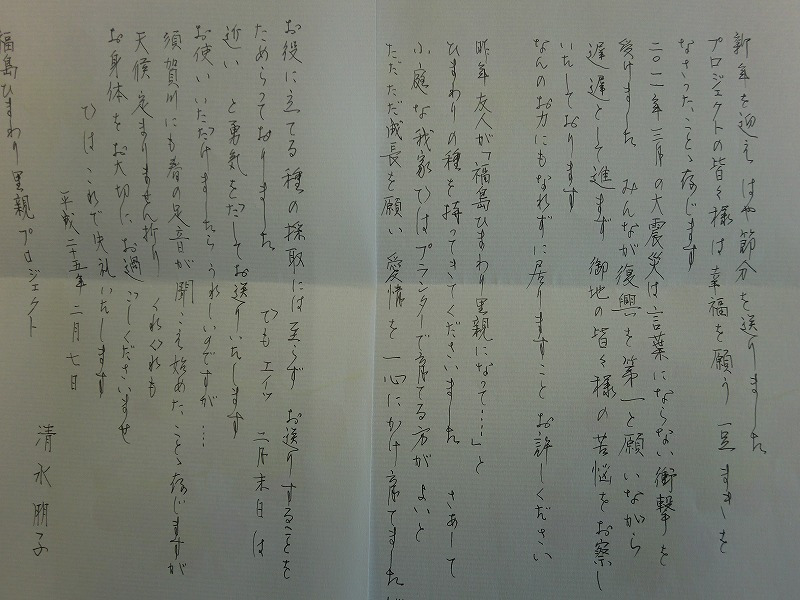 新年を迎え はや節分を送りました
プロジェクトの皆々様は幸福を願う 一豆まきを
なさったことゝ存じます
二〇一一年三月の大震災は 言葉にならない衝撃を
受けました みんなが復興を第一と願いながら
遅遅として進まず 御地の皆々様の苦悩をお察し
いたしております
なんのお力にもなれずに居りますこと お許しください
昨年友人が「福島ひまわり里親になって‥‥」と
ひまわりの種を持ってきてくださいました さあーて
小庭な我家ではプランターで育てる方がよいと
ただただ成長を願い 愛情を一心にかけ育てましたが
お役に立てる種の採取には至らず お送りすることを
ためらっておりました でもエイッ 二月末日は
近い と勇気をだしてお送りいたします
お使いいただけましたら うれしいのですが…
須賀川にも春の足音が聞こえ始めたことゝ存じますが
天候定まりません折り くれぐれも
お身体をお大切に お過ごしくださいませ
ではこれで失礼いたします
平成二十五年 二月七日
清水朋子
福島ひまわり里親プロジェクト